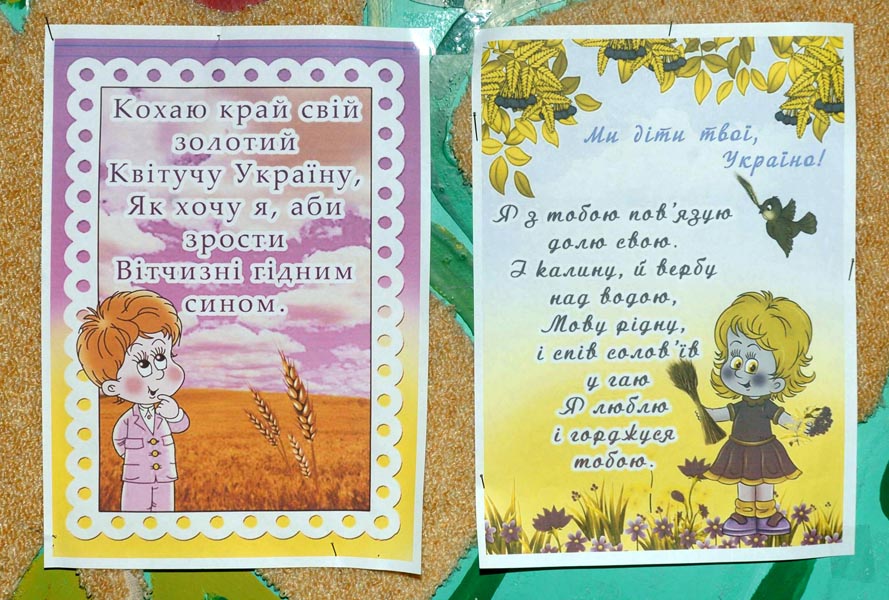 Кохаю край свій
золотий
Квітучу Україну,
Як хочу я, аби
зрости
Вітчизні гідним
сином.
Ми діти твої,
Україно!
Я з тобою пов'язую
долю свою.
І калину, й вербу
над водою,
Мову рідну,
і спів солов'їв
у гаю
Я люблю
і горджуся
тобою.